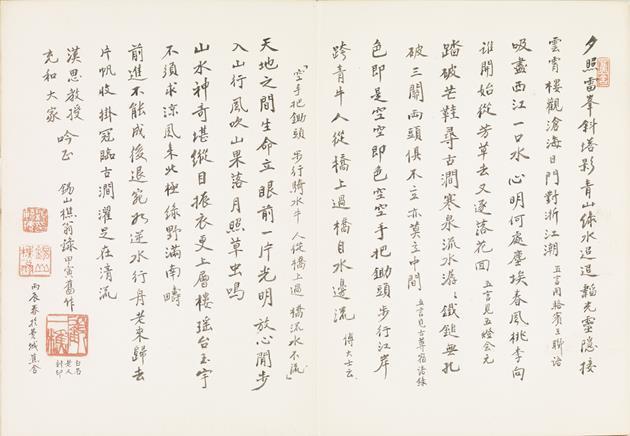 夕照雷峯斜塔影青山綠水迢迢韜光靈隱接
雲霄樓觀滄海日門對浙江潮 五言用駱賓王聯語
吸盡西江一口水心明何處塵埃春風桃李向
誰開始從芳草去又逐落花回 五言見五燈会元
踏破芒鞋尋古澗寒泉流水潺潺鐵鎚無孔
破三關兩頭俱不立亦莫立中間 五言見古尊宿语録
色即是空空即色空空手把鋤頭步行江岸
跨青牛人從橋上過橋自水邊流 傅大士云
「空手把鋤頭 步行騎水牛 人從橋上過 橋流水不流」
天地之間生命立眼前一片光明放心閒步
入山行風吹山果落月照草虫鳴
山水神奇堪縱目振衣更上層樓瑶台玉宇
不須求涼風来此極綠野滿南疇
前進不能成後退宛如逆水行舟共東歸去
片帆收掛冠臨古澗濯足在清流
漢思教授 吟正
充和大家
錫山樵翁 甲寅舊作
丙辰春於費城蕉舍
白石
老人
刻印